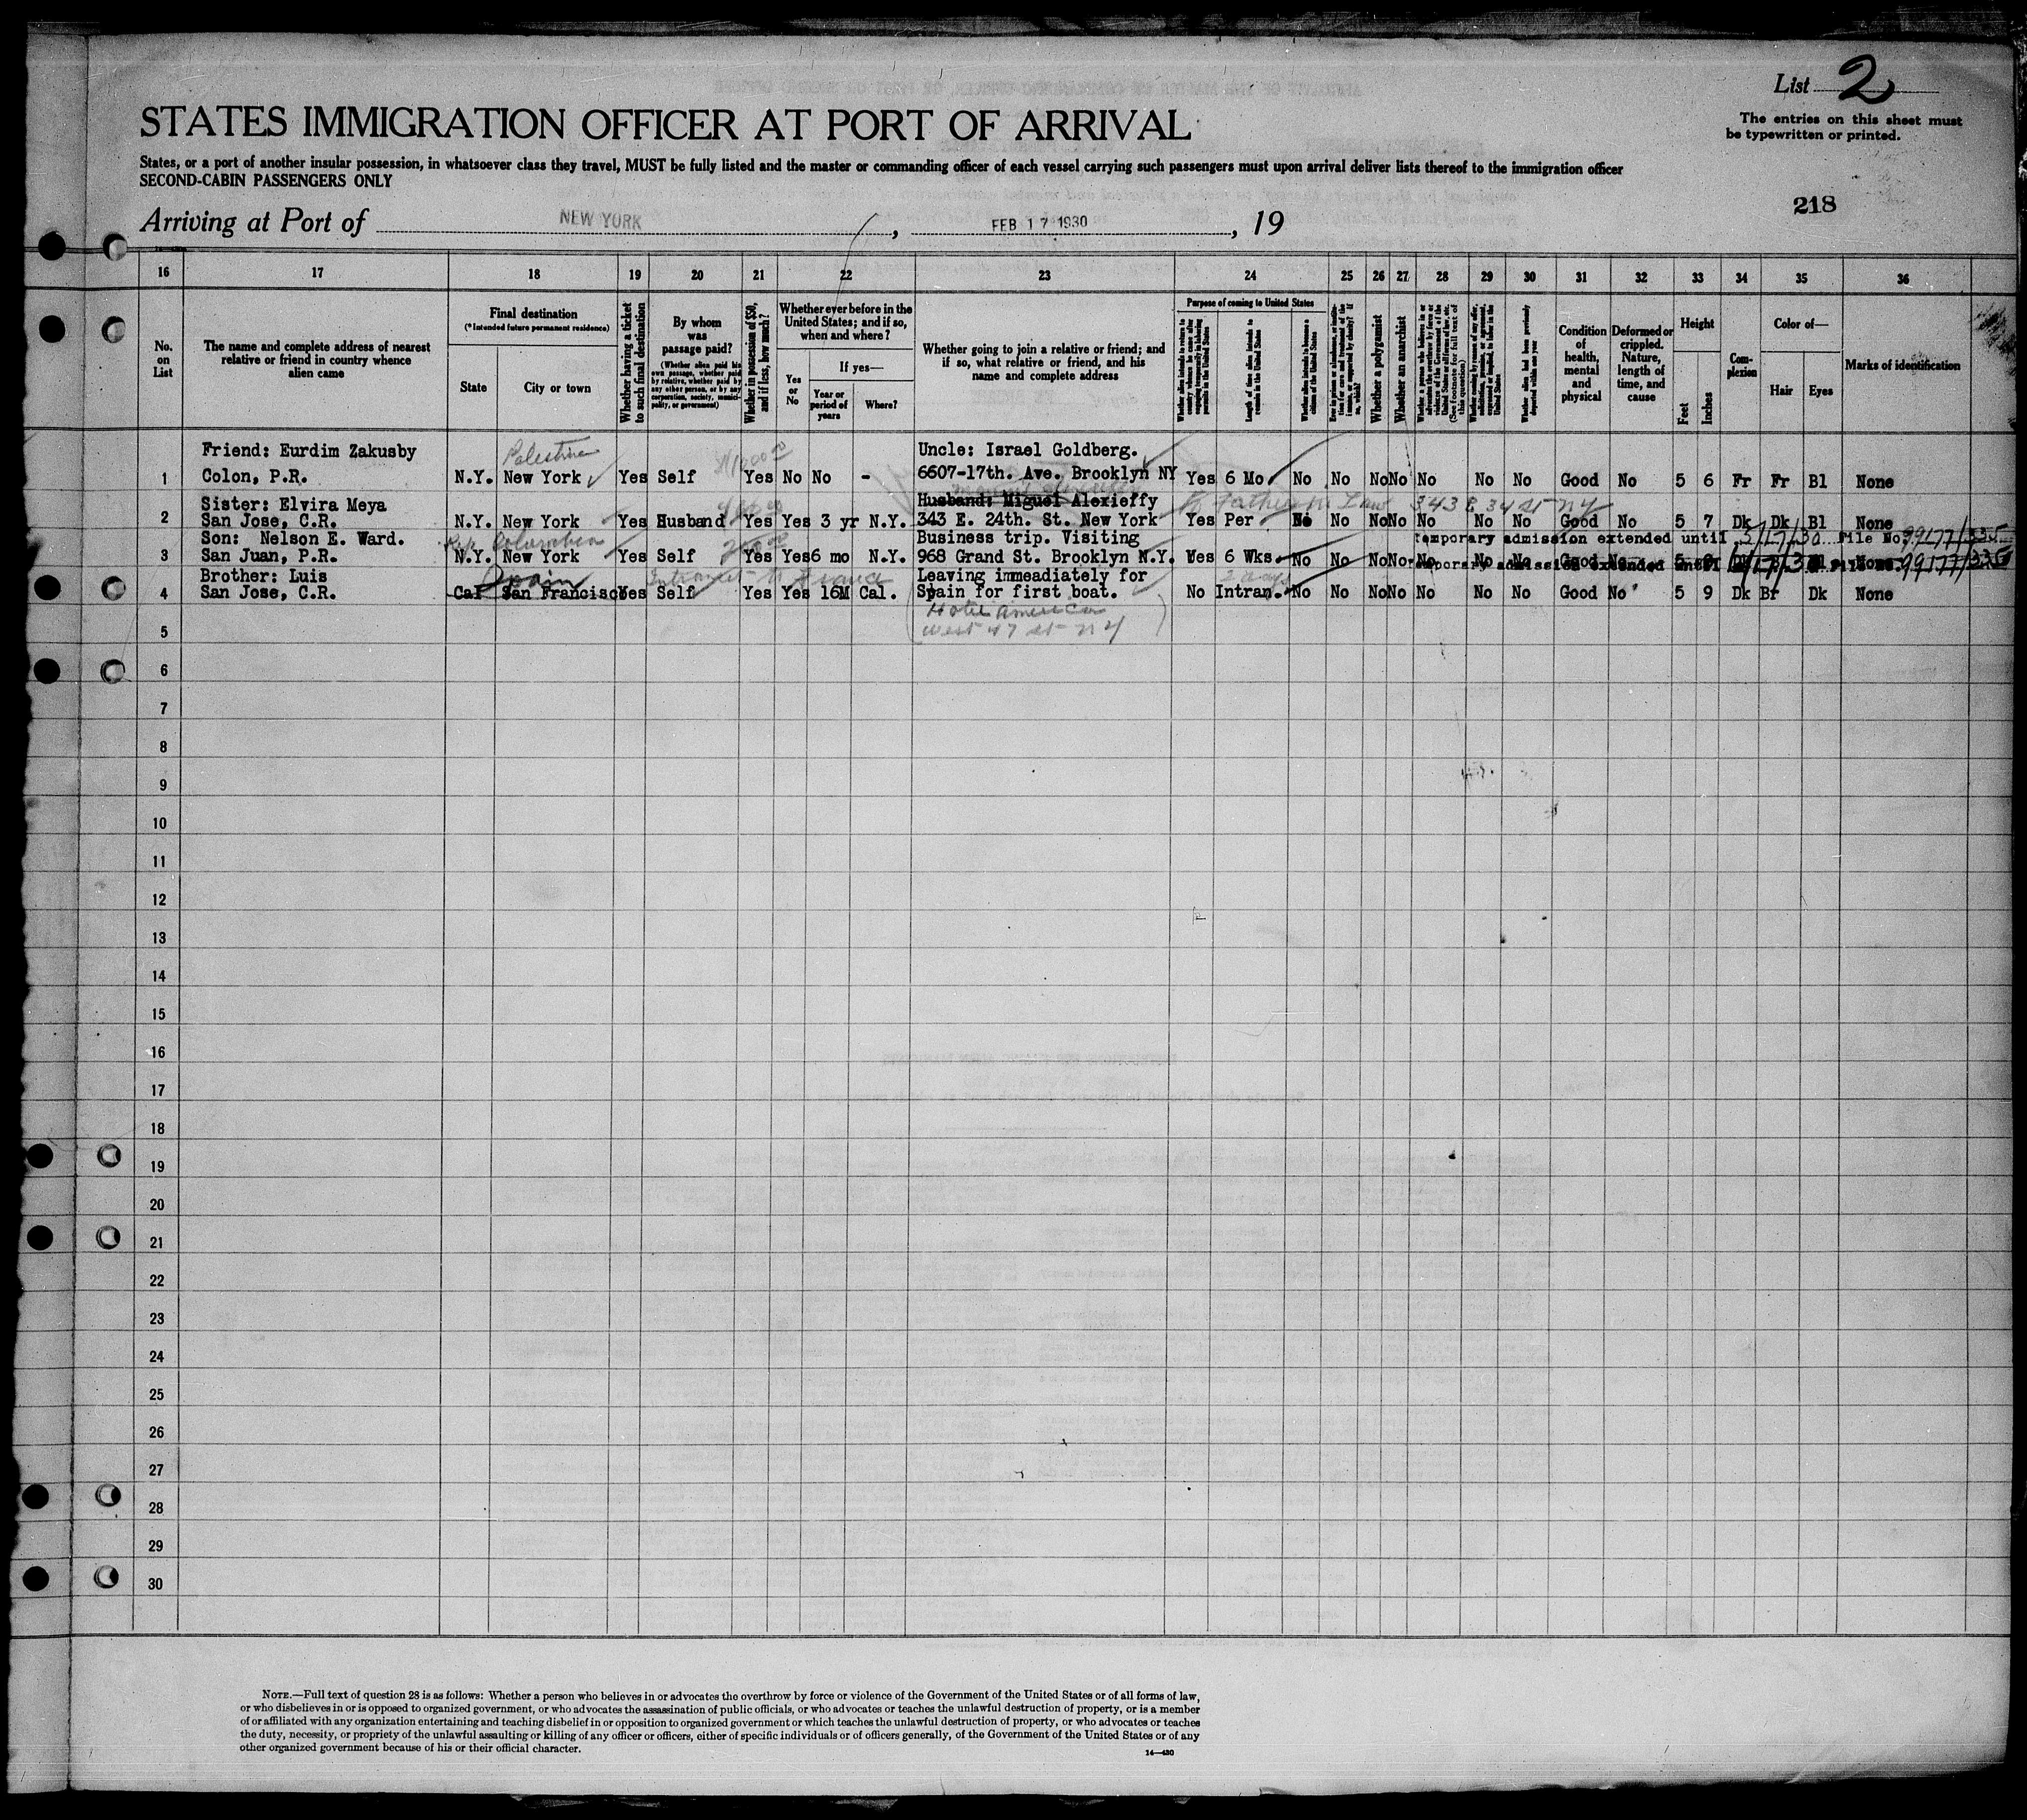 List 2
The entries on this sheet must
be typewritten or printed.
STATES IMMIGRATION OFFICER AT PORT OF ARRIVAL
States, or a port of another insular possession, in whatsoever class they travel, MUST be fully listed and the master or commanding officer of each vessel carrying such passengers must upon arrival deliver lists thereof to the immigration officer
SECOND-CABIN PASSENGERS ONLY
218
Arriving at Port of NEW YORK, FEB 17 1930, 19
16 17 18 19 20 21 22 23 24 25 26 27 28 29 30 31 32 33 34 35 36
No. on List
The name and complete address of nearest relative or friend in country whence alien came
Final destination
(*Intended future permanent residence)
State
City or town
Whether having a ticket to such final destination
By whom was passage paid?
(Whether alien paid his own passage, whether paid by relative, whether paid by any other person, or by any corporation, society, municipality, or government)
Whether in possession of $50, and if less, how much?
Whether ever before in the United States; and if so, when and where?
Yes or No
If yes—
Year or period of years
Where?
Whether going to join a relative or friend; and if so, what relative or friend, and his name and complete address
Purpose of coming to United States
Whether alien intends to return to country whence he came after engaging temporarily in laboring pursuits in the United States
Length of time alien intends to remain in the United States
Whether alien intends to become a citizen of the United States
Whether a polygamist
Whether an anarchist
(See footnote for full text of this question)
Whether alien had been previously deported within one year
Condition of health, mental and physical
Deformed or crippled. Nature, length of time, and cause
Height
Feet
Inches
Complexion
Color of—
Hair
Eyes
Marks of identification
Friend: Eurdim Zakusby Palestine $1000 Uncle: Israel Goldberg.
1 Colon, P.R. N.Y. New York Yes Self Yes No No - 6607-17th. Ave. Brooklyn NY Yes 6 Mo No No No No No No No Good No 5 6 Fr Fr Bl None
Sister: Elvira Meya Husband: Miguel Alexieffy Father in Law 343 E 34 st NY
2 San Jose, C.R. N.Y. New York Yes Husband Yes Yes 3 yr N.Y. 343 E. 24th. St. New York Yes Per No No No No No No No Good No 5 7 Dk Dk Bl None
Son: Nelson E. Ward. Columbia Business trip. Visiting temporary admission extended until 3/17/30 File No. 99177/335
3 San Juan, P.R. N.Y. New York Yes Self Yes Yes 6 mo N.Y. 968 Grand St. Brooklyn N.Y. Yes 6 Wks. No No No No No No No Good No None 99177/335
Brother: Luis Spain Intransit to France Leaving immeadiately for 2 days
4 San Jose, C.R. Cal San Francisco Yes Self Yes Yes 16M Cal. Spain for first boat. No Intran. No No No No No No No Good No 5 9 Dk Br Dk None
Hotel America
5 West 47 st NY
6
7
8
9
10
11
12
13
14
15
16
17
18
19
20
21
22
23
24
25
26
27
28
29
30
NOTE.—Full text of question 28 is as follows: Whether a person who believes in or advocates the overthrow by force or violence of the Government of the United States or of all forms of law,
or who disbelieves in or is opposed to organized government, or who advocates the assassination of public officials, or who advocates or teaches the unlawful destruction of property, or is a member
of or affiliated with any organization entertaining and teaching disbelief in or opposition to organized government or which teaches the unlawful destruction of property, or who advocates or teaches
the duty, necessity, or propriety of the unlawful assaulting or killing of any officer or officers, either of specific individuals or of officers generally, of the Government of the United States or of any
other organized government because of his or their official character.
14—430